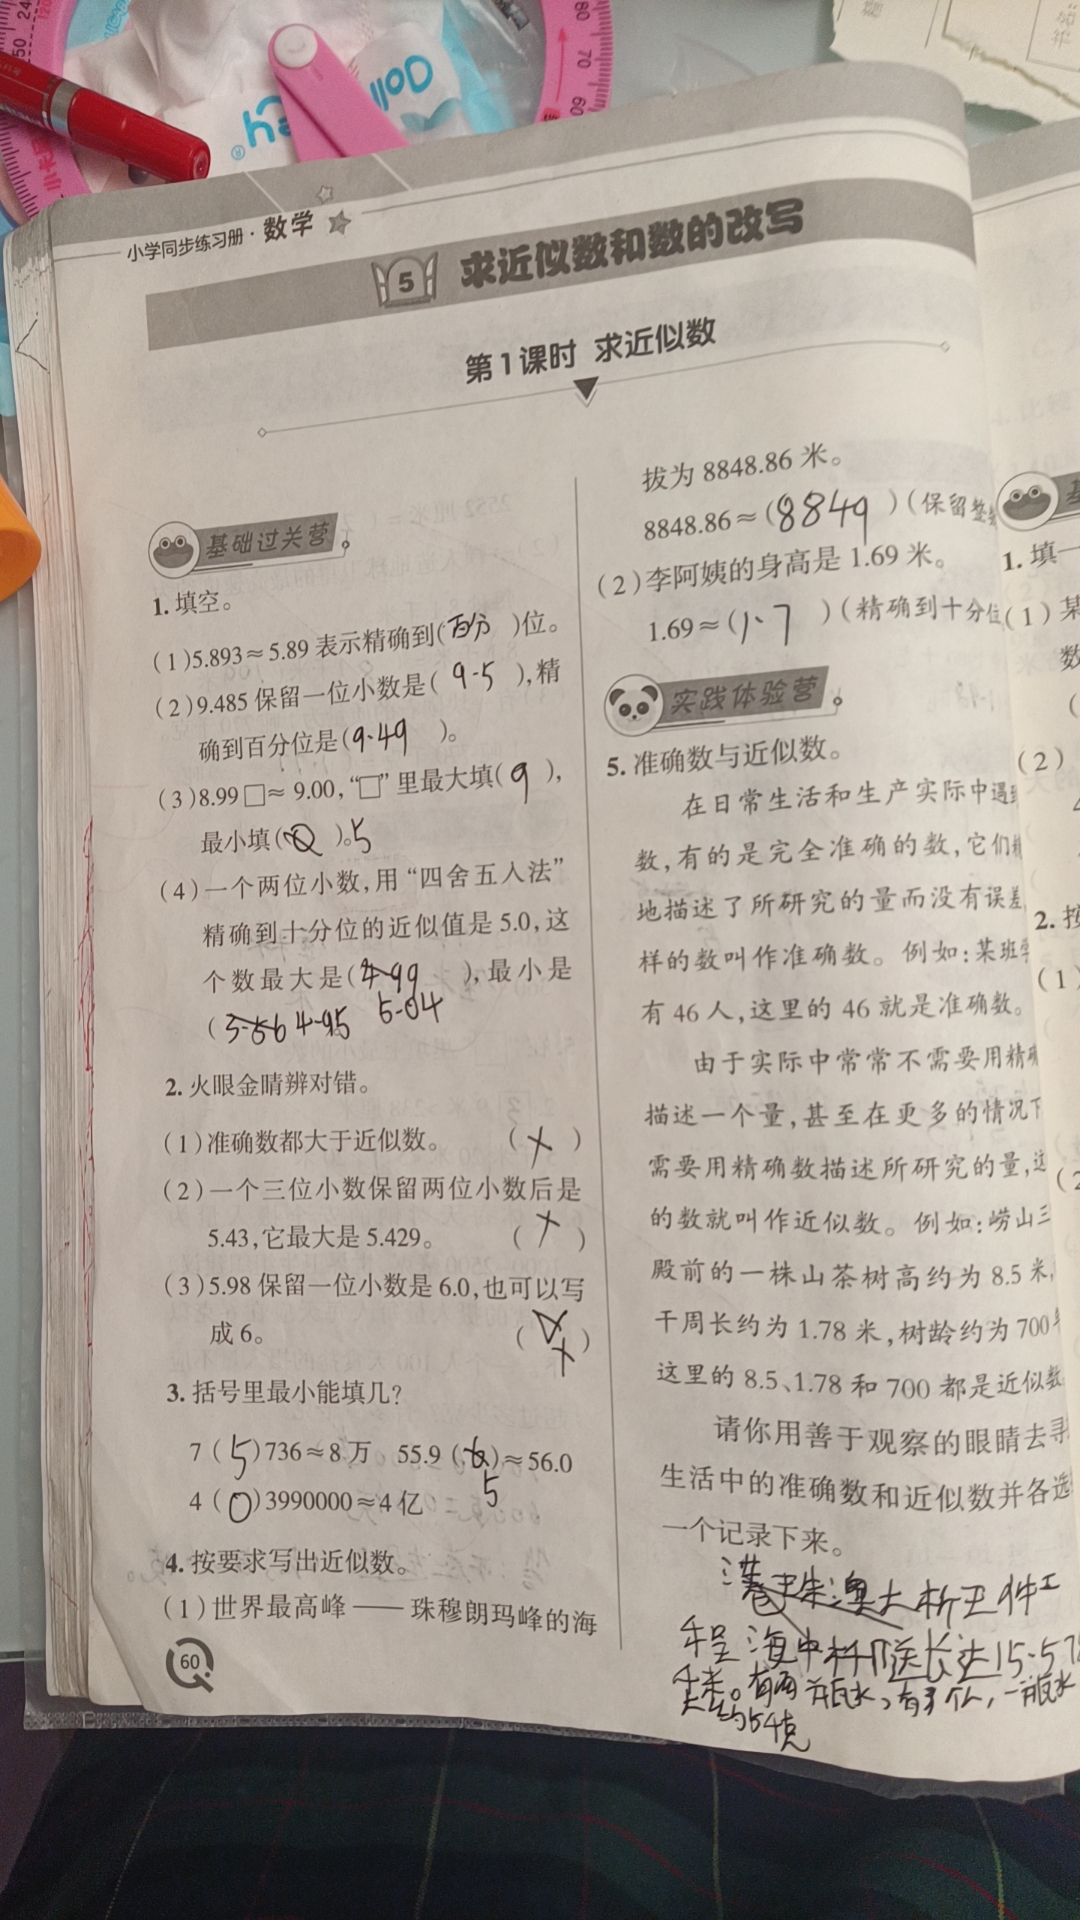 小学同步练习册·数学
5 求近似数和数的改写
第1课时 求近似数
基础过关营
1. 填空。
(1)5.893≈5.89表示精确到(百分)位。
(2)9.485保留一位小数是(9.5),精
确到百分位是(9.49)。
(3)8.99□≈9.00,“□”里最大填(9),
最小填( )。5
(4)一个两位小数,用“四舍五入法”
精确到十分位的近似值是5.0,这
个数最大是(4.99),最小是
( 4.95 5.04
2. 火眼金睛辨对错。
(1)准确数都大于近似数。(×)
(2)一个三位小数保留两位小数后是
5.43,它最大是5.429。(×)
(3)5.98保留一位小数是6.0,也可以写
成6。(×)
3. 括号里最小能填几?
7(5)736≈8万 55.9( )≈56.0
5
4(0)3990000≈4亿
4. 按要求写出近似数。
(1)世界最高峰——珠穆朗玛峰的海
60
拔为8848.86米。
8848.86≈(8849)(保留整
(2)李阿姨的身高是1.69米。
1.69≈(1.7)(精确到十分位
实践体验营
5. 准确数与近似数。
在日常生活和生产实际中遇到
数,有的是完全准确的数,它们
地描述了所研究的量而没有误差
样的数叫作准确数。例如:某班学
有46人,这里的46就是准确数。
由于实际中常常不需要用精确
描述一个量,甚至在更多的情况下
需要用精确数描述所研究的量,这
的数就叫作近似数。例如:崂山三
殿前的一株山茶树高约为8.5米,
干周长约为1.78米,树龄约为700年
这里的8.5、1.78和700都是近似数
请你用善于观察的眼睛去寻
生活中的准确数和近似数并各选
一个记录下来。
港珠澳大桥
程海中 长达15.5
千米。有两瓶水,有 个人,一瓶水
约54克
1. 填一
(1)某
数
(2)
2. 按
(1)